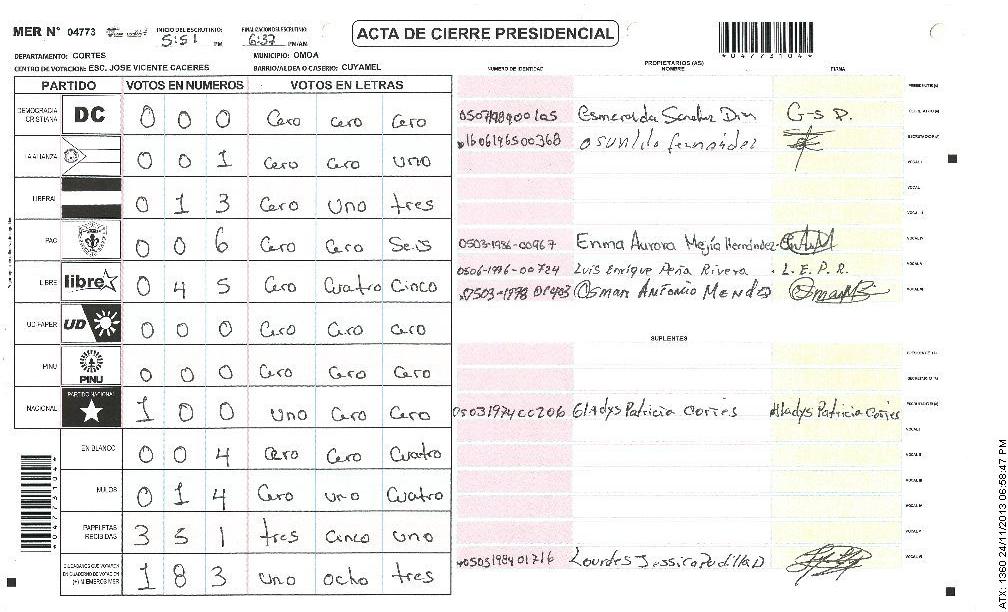 MER N° 04773
INICIO DEL ESCRUTINIO: 5:51 PM
FINALIZACION DEL ESCRUTINIO: 6:37 PM/AM
ACTA DE CIERRE PRESIDENCIAL
04773104
DEPARTAMENTO: CORTES
MUNICIPIO: OMOA
CENTRO DE VOTACION: ESC. JOSE VICENTE CACERES
BARRIO/ALDEA O CASERIO: CUYAMEL
PARTIDO VOTOS EN NUMEROS VOTOS EN LETRAS
DEMOCRACIA CRISTIANA DC 0 0 0 Cero cero Cero
LA ALIANZA 0 0 1 Cero Cero uno
LIBERAL 0 1 3 Cero Uno tres
PAC 0 0 6 Cero Cero Seis
LIBRE libre 0 4 5 Cero Cuatro Cinco
UD FAPER UD 0 0 0 Cero Cero Cero
PINU PINU 0 0 0 Cero Cero Cero
NACIONAL PARTIDO NACIONAL 1 0 0 uno Cero Cero
EN BLANCO 0 0 4 Cero Cero Cuatro
NULOS 0 1 4 Cero uno Cuatro
PAPELETAS RECIBIDAS 3 5 1 tres cinco uno
CIUDADANOS QUE VOTARON EN CUADERNO DE VOTACION (+) MIEMBROS MER 1 8 3 uno ocho tres
04773104
NUMERO DE IDENTIDAD
PROPIETARIOS (AS)
NOMBRE
FIRMA
Esmeralda Sanchez G-S D.
1606196500368 Osunildo fernández
0503-1986-00967 Enma Aurora Mejía Hernández
0506-1996-00724 Luis Enrique Peña Rivera L.E.P.R.
OSMAN ANTONIO MENDEZ
SUPLENTES
Gladys Patricia Cortes Gladys Patricia Cortes
0503198401716 Lourdes Jessica Padilla D
ATX: 1360 24/11/2013 06:58:47 PM